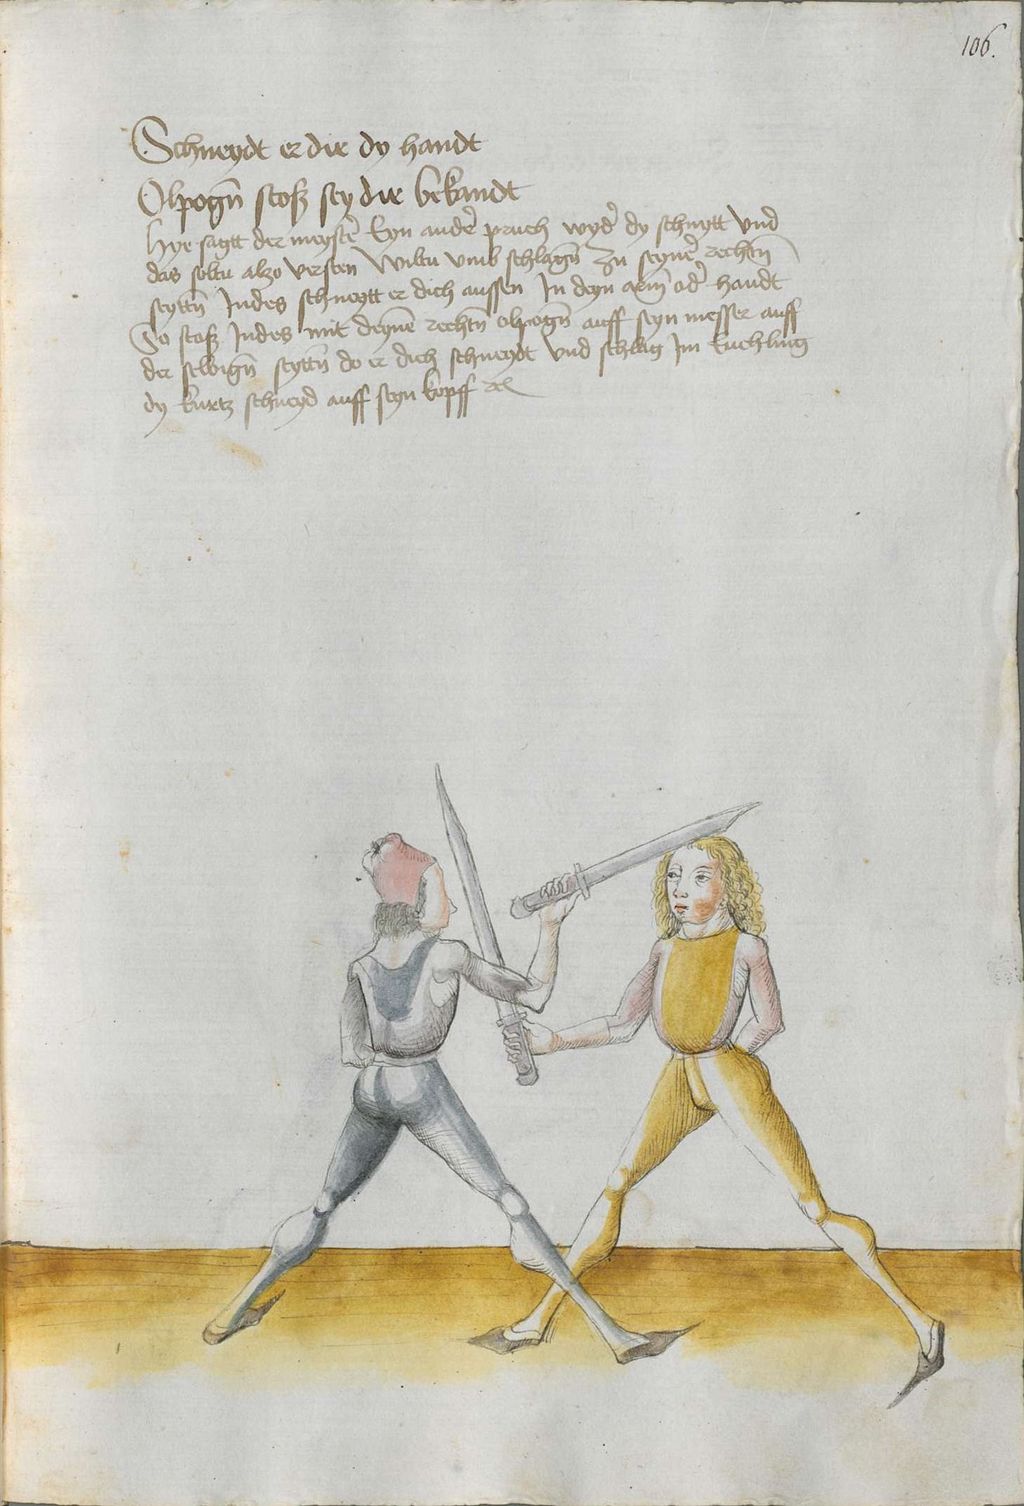 106.
Schneydt er dir dy handt
Olpogñ stosz sey dir bekandt
Hye sagtt der meyster Eyn ander pruch wyder dy schnytt Vnd
das soltu alzo versten Wiltu vmb schlagñ Zu seyner rechtñ
seyttñ Indes schneytt er dich aussen In deyn arm oder handt
So stosz Indes mit deyne rechtñ olpogñ auff seyn messer auff
der selbigñ seyttñ do er dich schneydt vnd schlag Im
dy kurtz schneyd auff seyn kopff